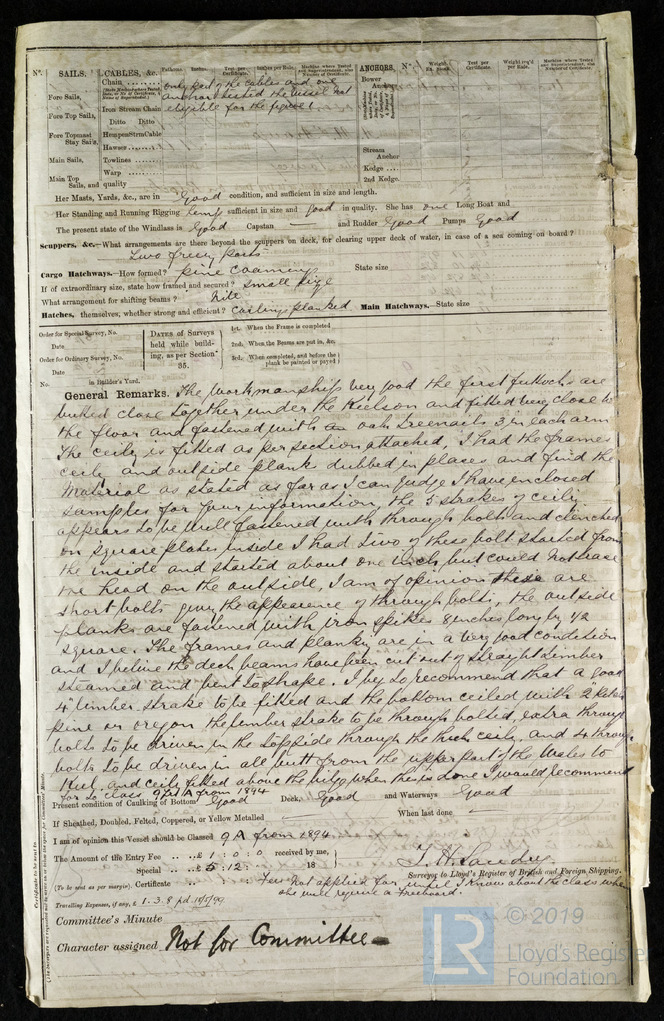 Nº. SAILS. CABLES, &c. Fathoms. Inches. Test per Certificate. Inches per Rule. Machine where Tested and Superintendent, and Number of Certificate. ANCHORS. Nº. Weight Ex. Stock. Test per Certificate. Weight req'd per Rule. Machine where Tested and Superintendent, and Number of Certificate.
Chain ......... only part of the cables and one Bower Anchors
Fore Sails, anchor tested the vessel not
Iron Stream Chain eligible for the figure 1
Fore Top Sails, Ditto Ditto
Fore Topmast Stay Sails, HempenStrmCable
Hawser .......
Main Sails, Towlines ...... Stream Anchor
Warp ......... Kedge ...
Main Top Sails, and quality 2nd Kedge.
Her Masts, Yards, &c., are in Good condition, and sufficient in size and length.
Her Standing and Running Rigging hemp sufficient in size and good in quality. She has one Long Boat and
The present state of the Windlass is Good Capstan — and Rudder Good Pumps Good
Scuppers, &c.—What arrangements are there beyond the scuppers on deck, for clearing upper deck of water, in case of a sea coming on board?
Two freeing ports
Cargo Hatchways.—How formed? pine coamings State size
If of extraordinary size, state how framed and secured? small size
What arrangement for shifting beams? Nile
Hatches, themselves, whether strong and efficient? Main Hatchways.—State size
Order for Special Survey, No. DATES of Surveys held while building, as per Section 35. 1st. When the Frame is completed
Date
Order for Ordinary Survey, No. 2nd. When the Beams are put in, &c.
Date 3rd. When completed, and before the plank be painted or payed
No. in Builder's Yard.
General Remarks. The workmanship very good the first futtocks are
butted close together under the Keelson and fitted very close to
the floor and fastened with an oak treenails 3 in each arm
The ceily is fitted as per section attached, I had the frames
ceile and outside plank dubbed in places and find the
Material as stated as far as I can judge I have enclosed
samples for your information, the 5 strakes of ceilig
appears to be well fastened with through bolts and clenched
on square plates inside I had two of these bolt started from
the inside and started about one inch, but could not
the head on the outside, I am of opinion these are
short bolts giving the appearence of through bolts, the outside
planks are fastened with iron spikes 8 inches long by 1/2
square. The frames and planky are in a very good condition
and I believe the deck beams have been cut out of straight timber
steamed and bent to shape. I beg to recommend that a good
4" limber strake to be fitted and the bottom ceiled with 2
pine or oregon the limber strake to be through bolted, extra through
bolts to be driven in the topside through the thick ceily, and 4 through
bolts to be driven in all butt from the upper part of the Wales to
Keel, and ceily fitted above the bilge when this is done I would recommend
for to class 9 A from 1894
Present condition of Caulking of Bottom Good Deck, Good and Waterways Good
If Sheathed, Doubled, Felted, Coppered, or Yellow Metalled — When last done —
I am of opinion this Vessel should be Classed 9 A from 1894
The Amount of the Entry Fee .. ..£ 1 : 0 : 0 received by me,
Special .. ..£ 5 : 12 : 18
(To be sent as per margin). Certificate .. .. : Fee not applied for until I know about the class when
Surveyor to Lloyd's Register of British and Foreign Shipping.
she will require a Freeboard.
Travelling Expenses, if any, £ 1.3.8
Committee's Minute
Character assigned Not for Committee
© 2019
LR
Lloyd's Register
Foundation